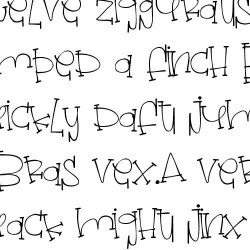 elve ziggurats
mped a finch
ickly daft jum
Bras vex.A ver
lack might jinx